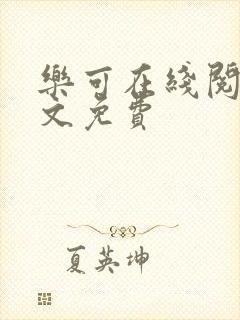 樂可在綫閱
文免費
夏英坤